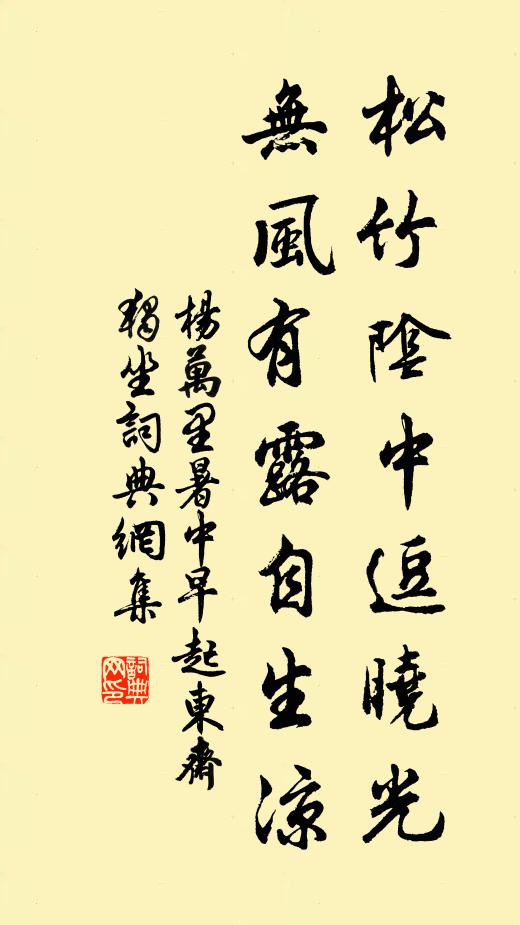 松竹陰中逗曉光
無風有露自生涼
楊萬里暑中早起東齋
獨坐詞典網集
詞典网印